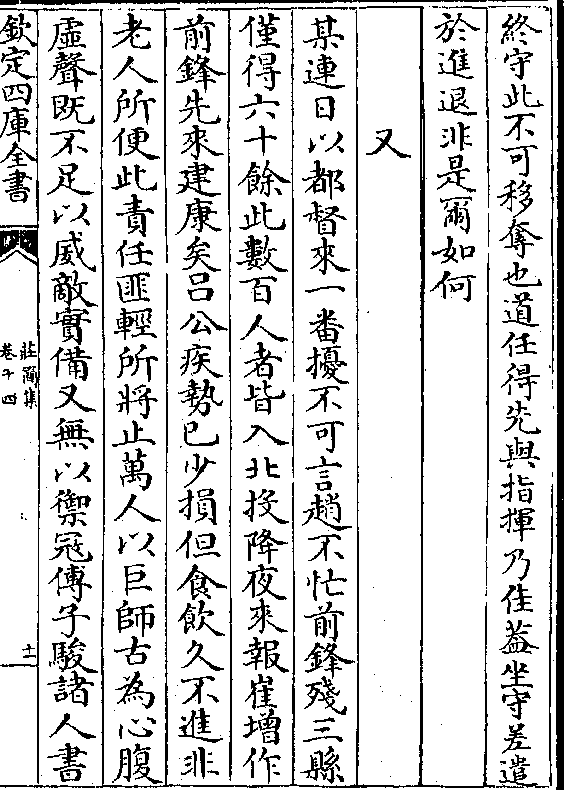 終守此不可移奪也道任得先與指揮乃佳葢坐守差遣
於進退非是爾如何
又
某連日以都督來一番擾不可言趙不忙前鋒殘三縣
僅得六十餘此數百人者皆入北投降夜來報崔增作
前鋒先來建康矣吕公疾勢已少損但食飲久不進非
老人所便此責任匪輕所將止萬人以巨師古為心腹
虛聲既不足以威敵實備又無以禦冦傅子駿諸人書
欽定四庫全書
莊簡集
卷十四
十一